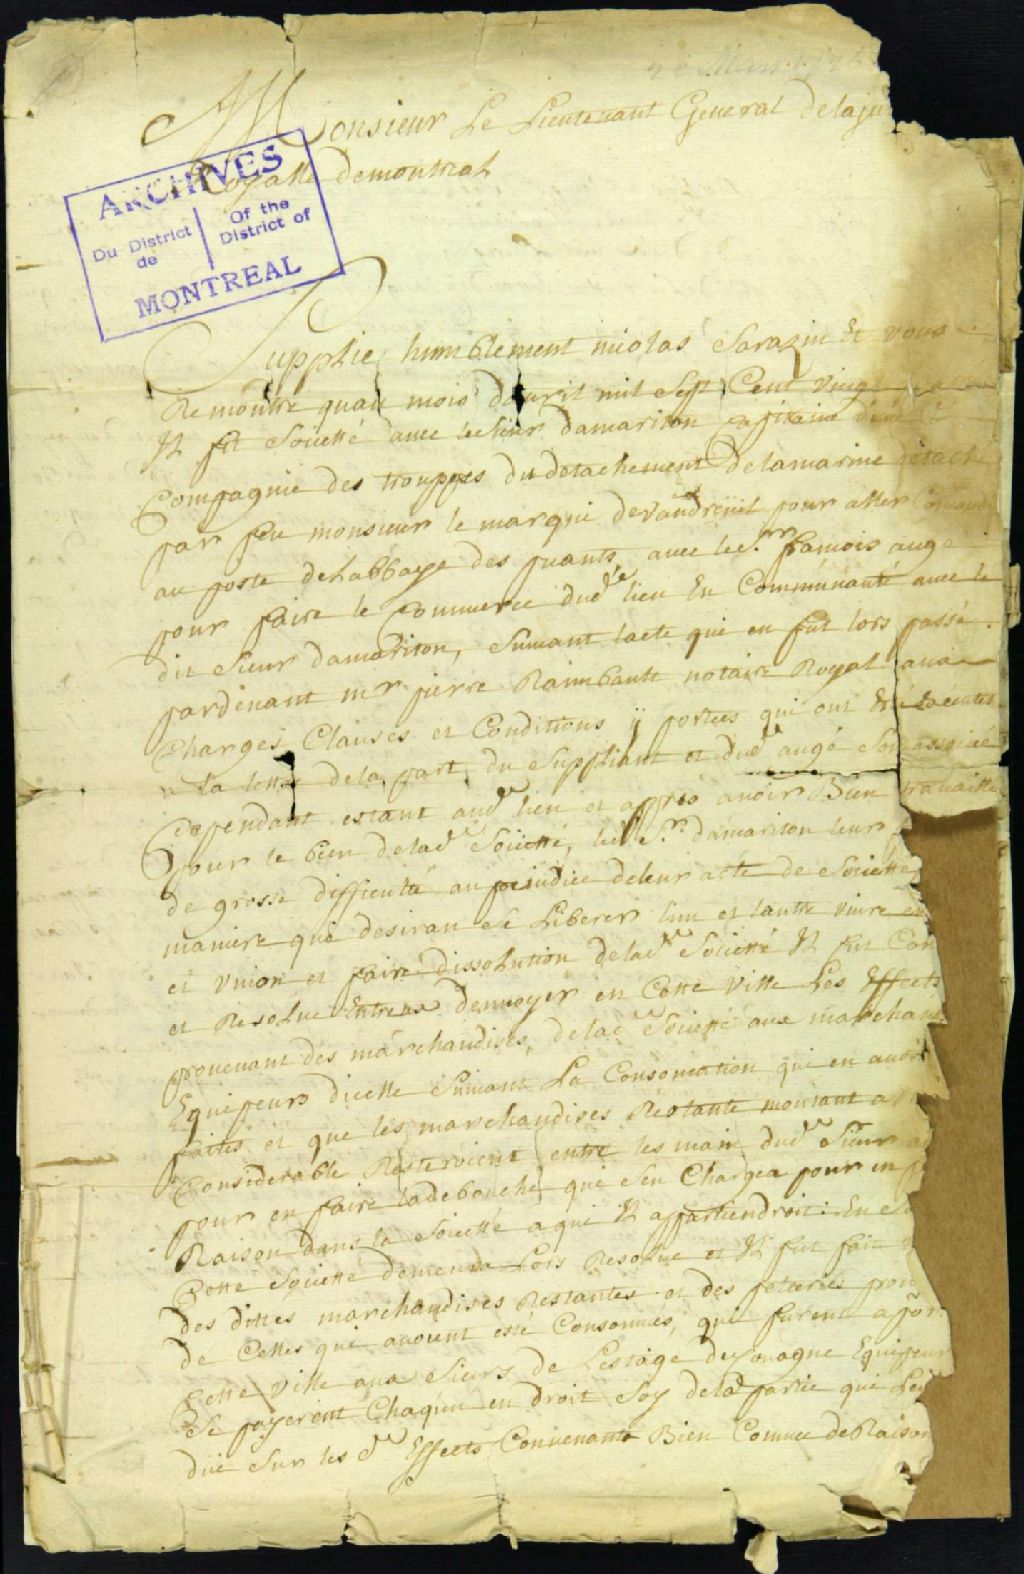 Monsieur Le Lieutenant General delaju
Royalle demontreal
ARCHIVES
Du District de
Of the District of
MONTREAL
Supplie humblement nicolas Sarazin Et vous
Remontre quau mois davril mil Sept Cent vingt
Il fit Societté avec leSieur damariton Capitaine dune
Compagnie des trouppes du detachement Delamarine détaché
par feu monsieur le marqui devaudreuil pour aller Comand
au poste delabbaye des puants, avec led. Sr. francois augé
pour faire le Commerce dud lieu En Communauté avec le
dit Sieur damariton, Suivant lacte qui en fut lors passé
pardevant mr pierre Raimbault notaire Royal aux
Charges, Clauses et Conditions ÿ portees qui ont Eté Executés
a la lettre dela part du Suppliant et dud augé Son associé
Cependant estant aud lieu et apres avoir Bien travaillé
pour le bien delad Societté, led Sr. damariton leur
de grosse difficulté au prejudice deleur acte de Societté
maniere que desiran Se Liberer lun et lautre vivre en
et Union et faire dissolution delad Societté Il fut Con
et Resolue Entreux denvoyer en Cette Ville Les Effects
provenant des marchandises, delad Societté aux marchans
Equipeurs dicelle Suivant La Consomation qui en avoit
faittes et que les marchandises Restante montant a
Considerable Resteroient entre les main dud Sieur
pour en faire ladebouche, qui Sen Chargea pour en
Raison dans la Societté a qui Il appartiendroit: En
Cette Societté demeura Lors Resolue et Il fut fait
des dittes marchandises Restantes et des peteries prov
de Celles qui avoient esté Consomués, qui furent
Cette Ville aux Sieurs de Lestage deCouagne Equipeur
Se payerent Chaqun en droit Soy delad partie qui Leu
due Sur les d Effects Convenants Bien Comme deRaison